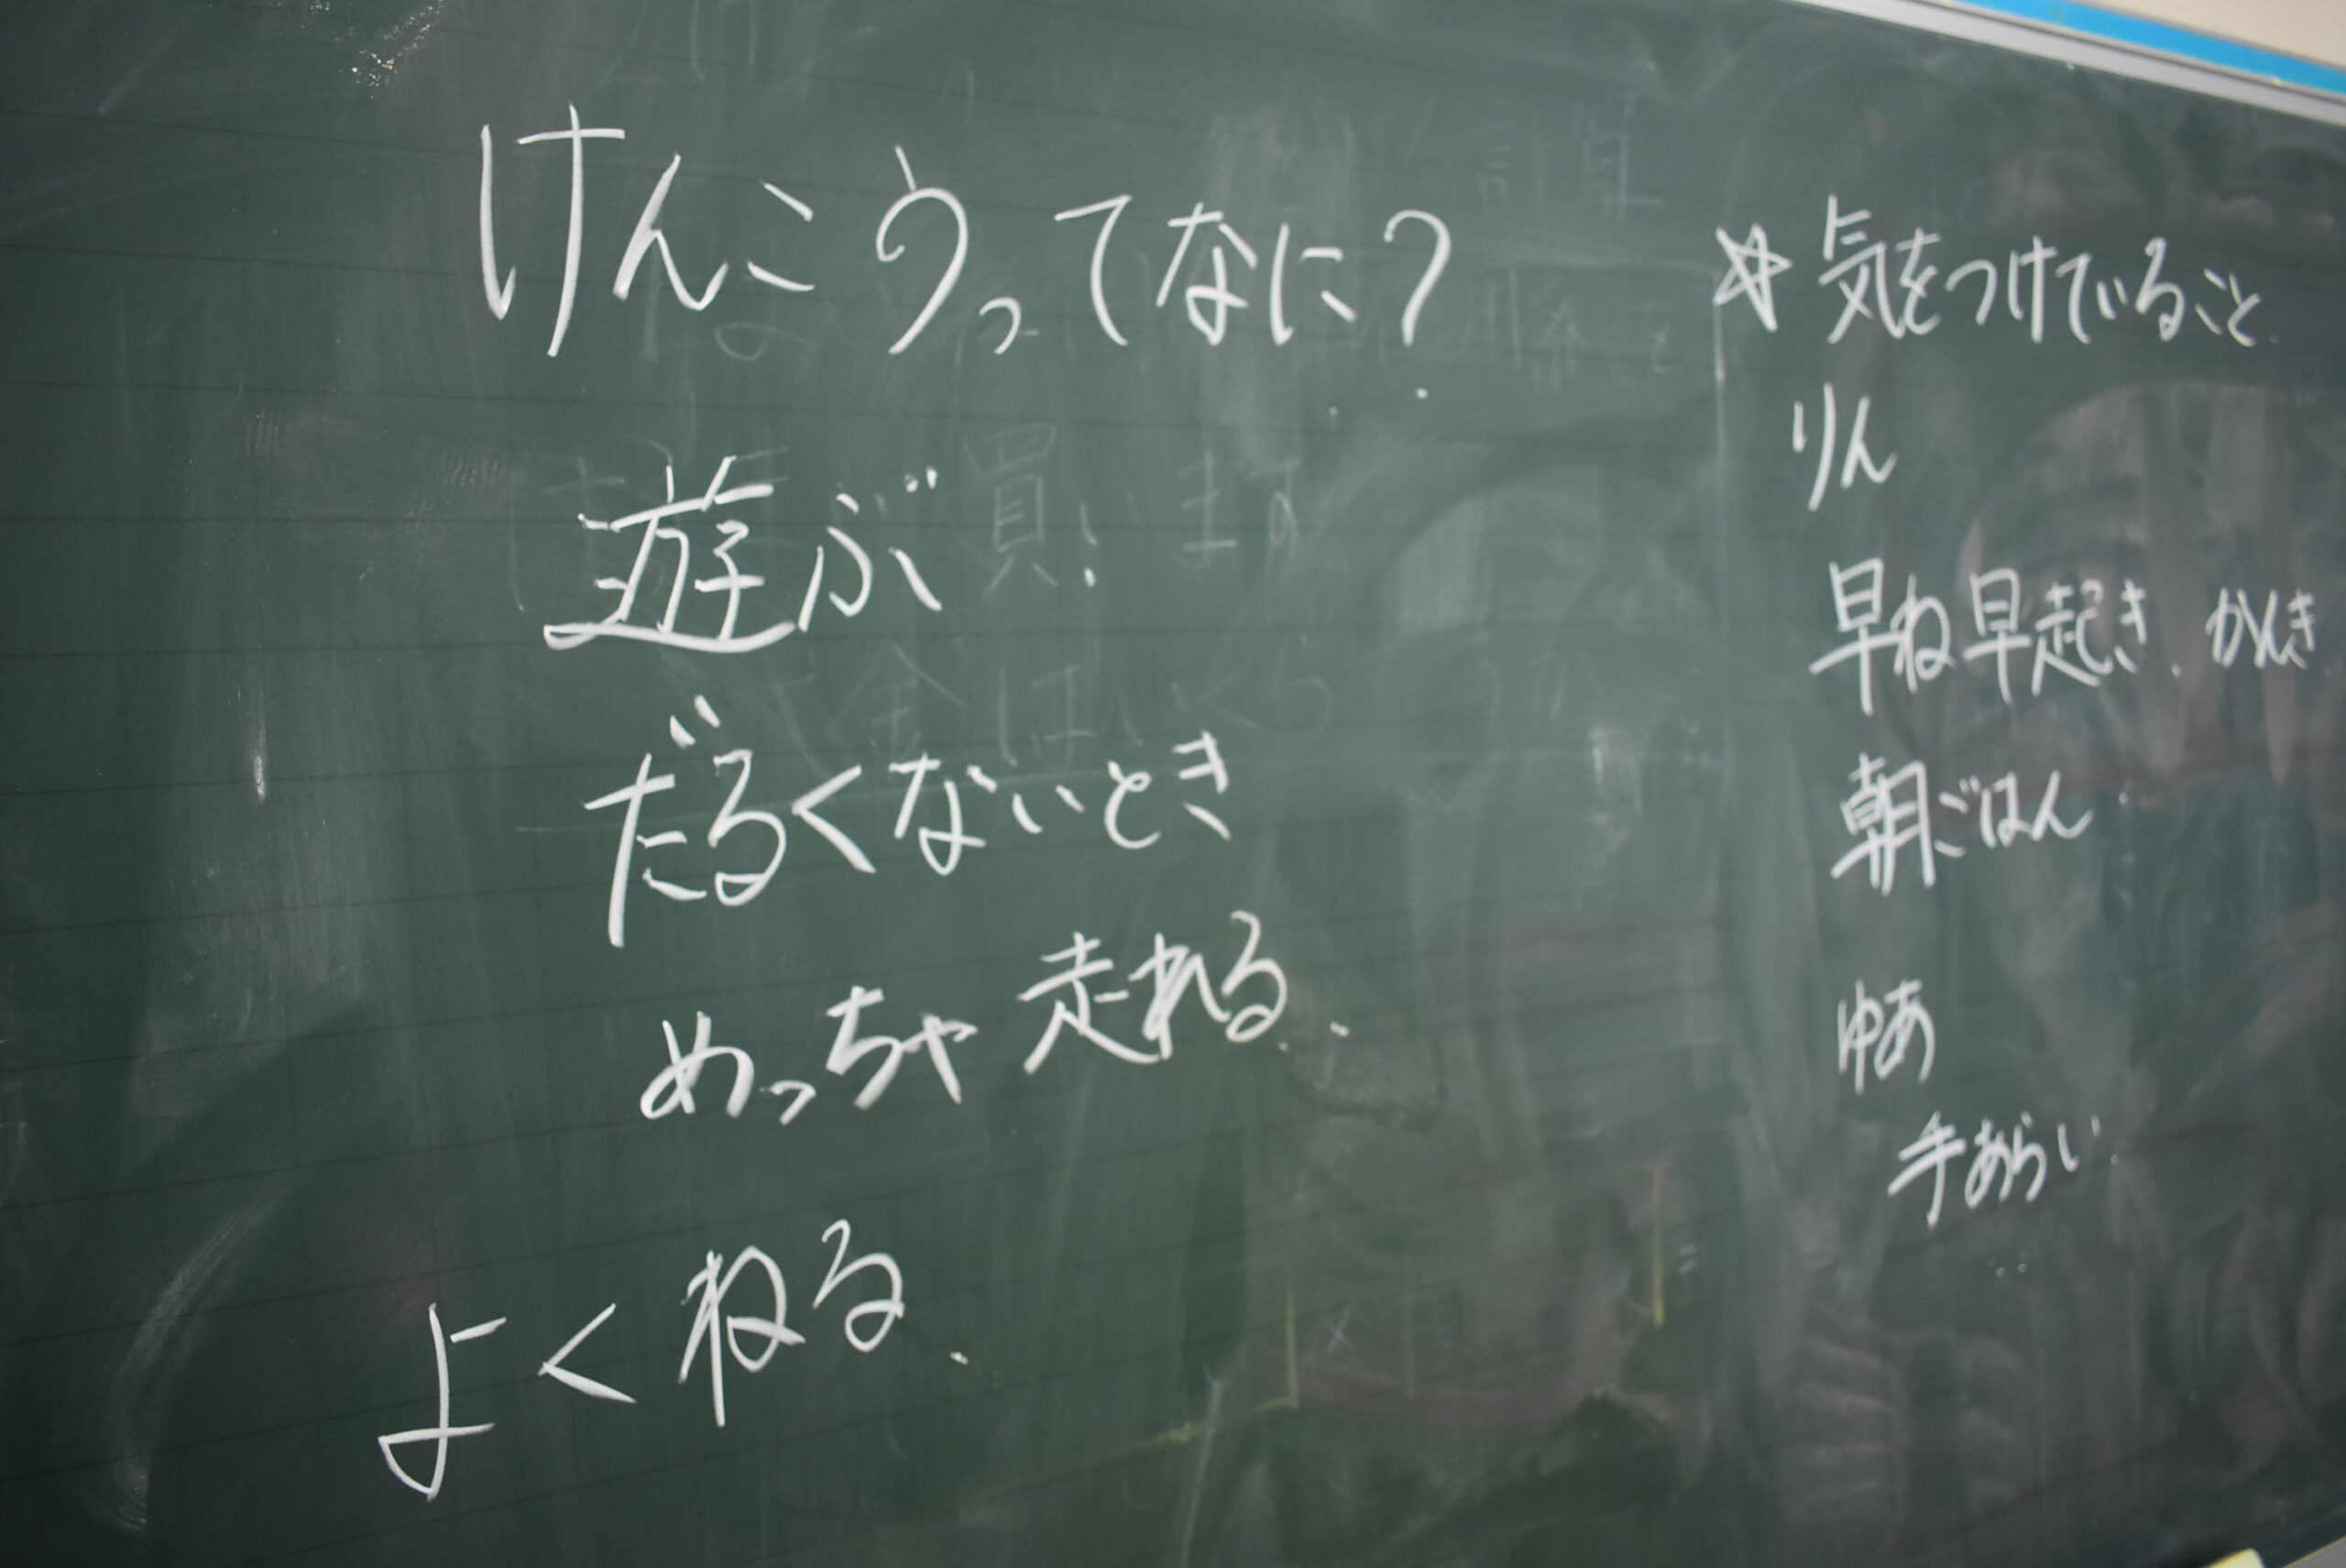 けんこうってなに?
遊ぶ
だるくないとき
めっちゃ走れる.
よくねる.
☆気をつけていること.
りん
早ね早起き. かんき
朝ごはん
ゆあ
手あらい